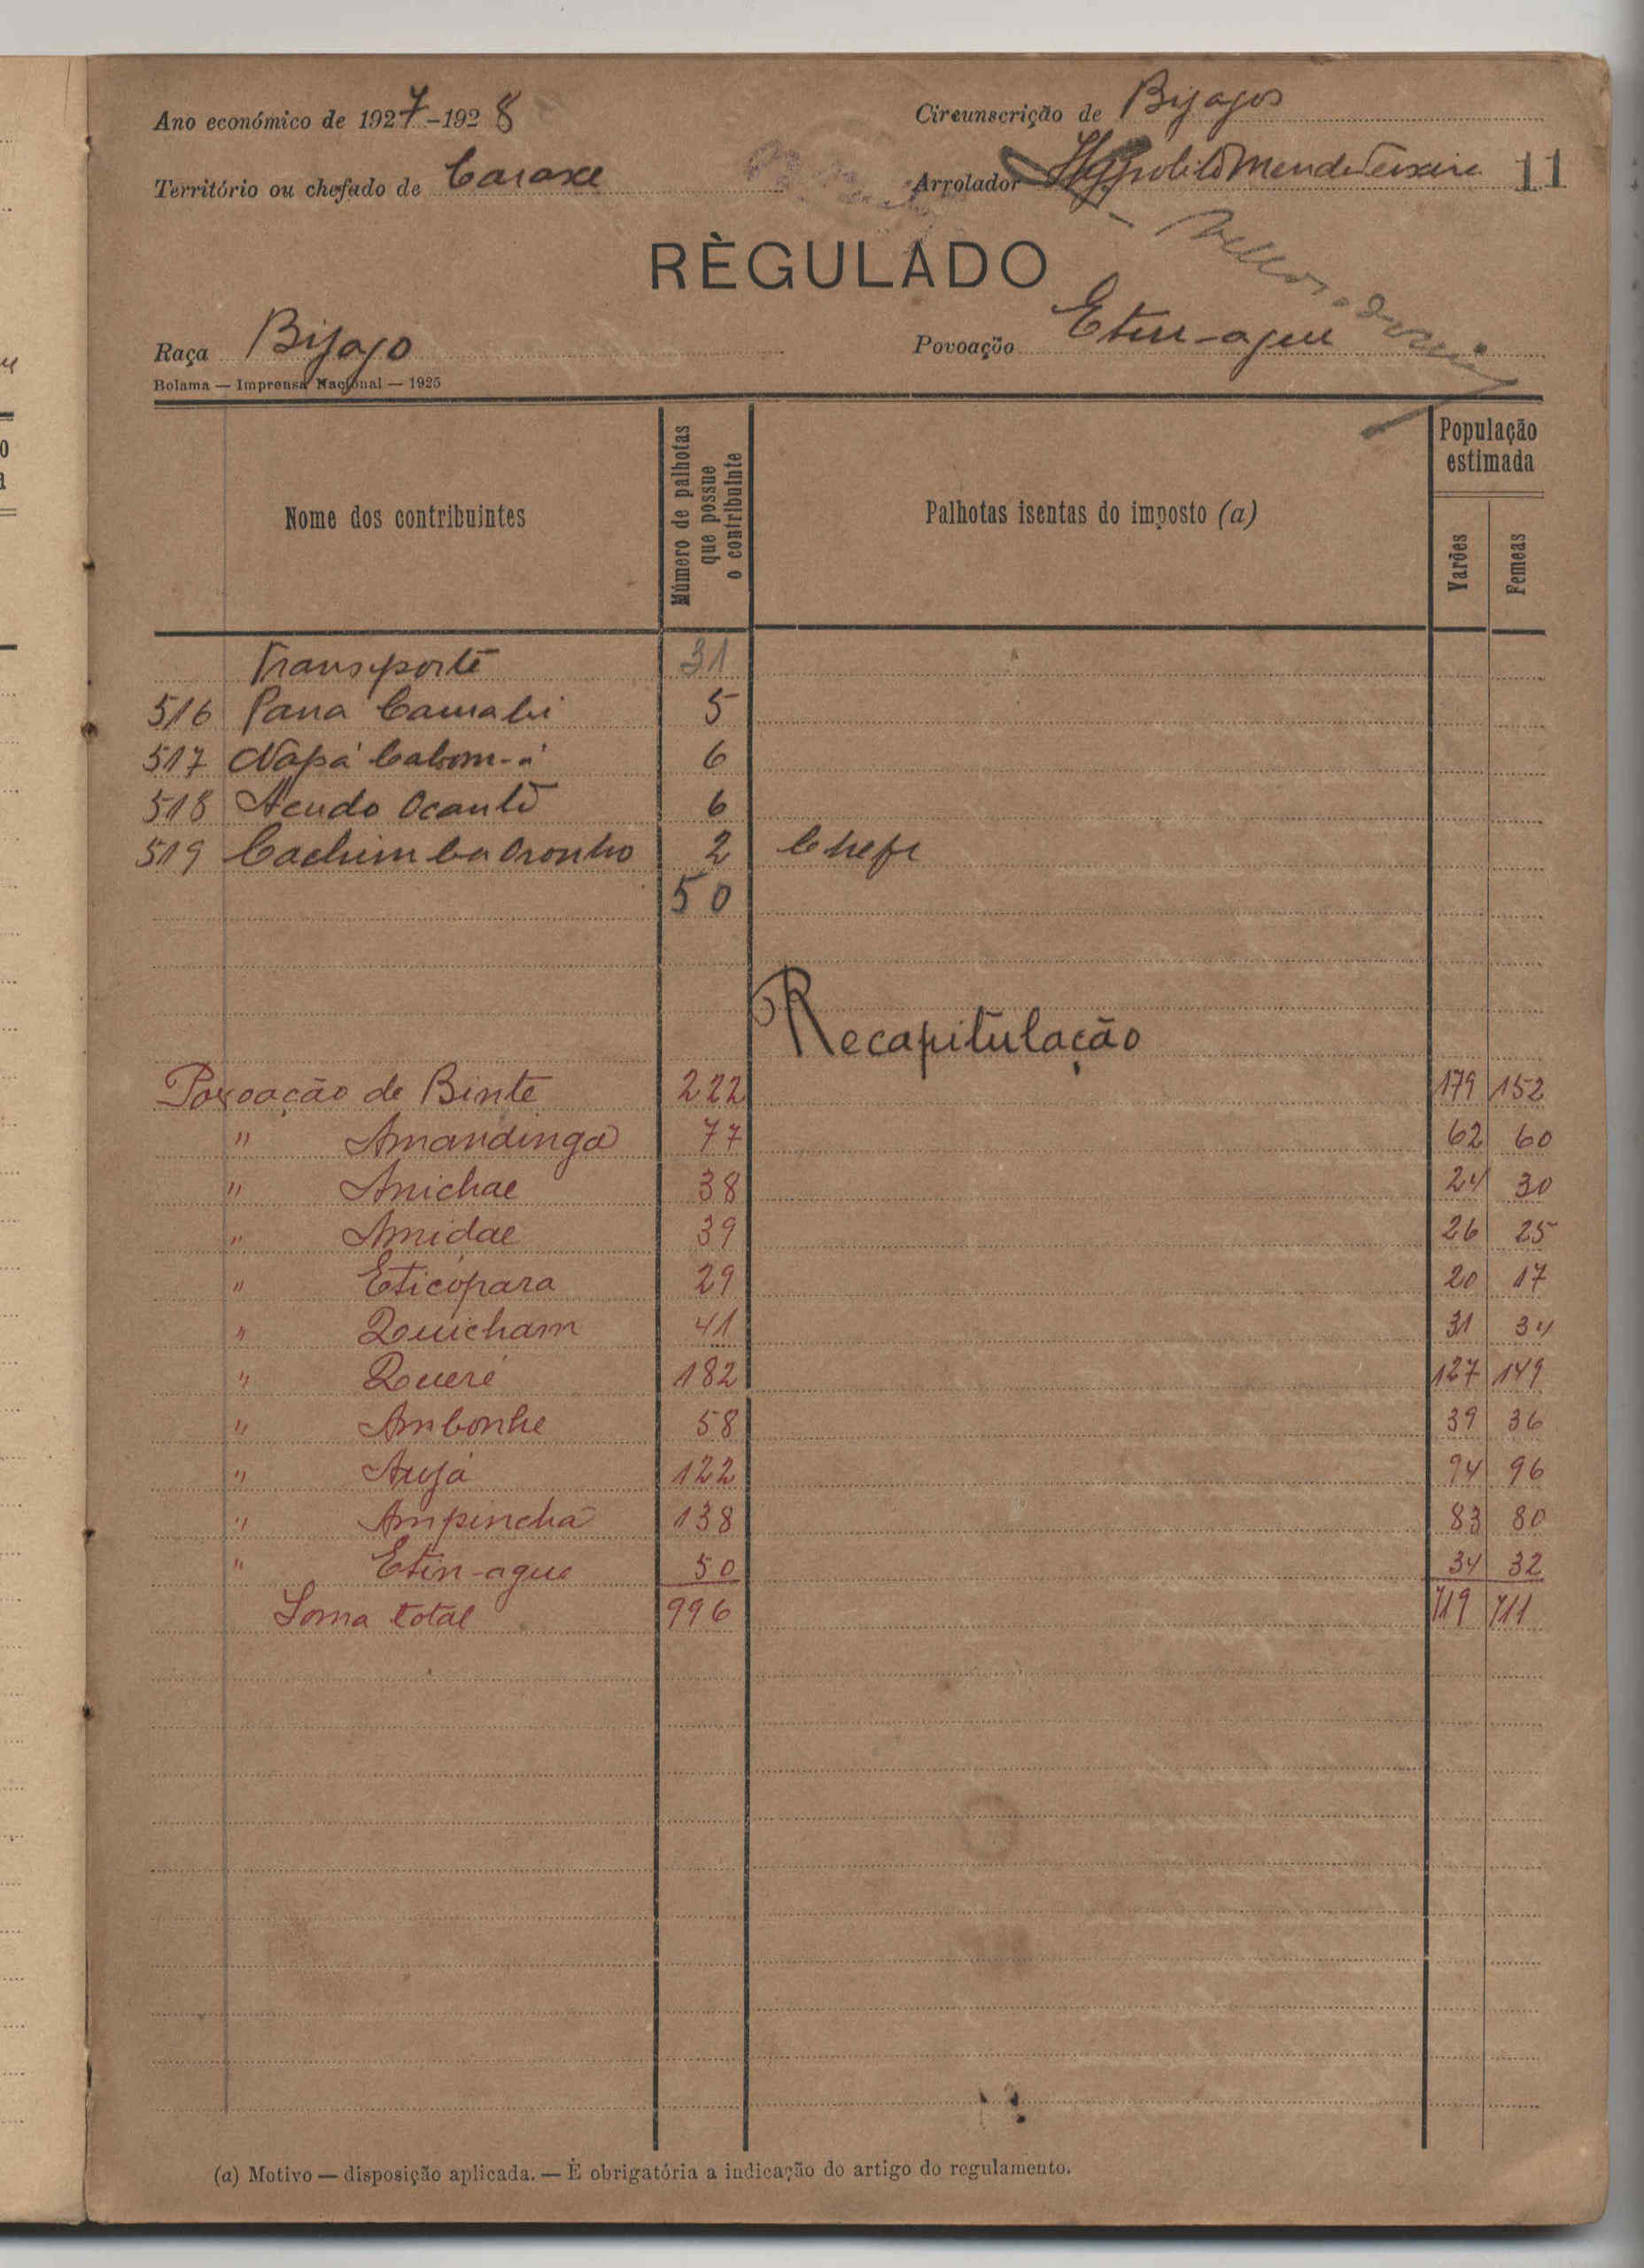 Ano económico de 1927-1928
Circunscrição de Bijagos
Território ou chefado de Caraxe
Arrolador Hyppolito Mendes Teixeira 11
RÈGULADO
Raça Bijago
Povoação Etin-ague
Bolama — Imprensa Nacional — 1925
Nome dos contribuintes
Número de palhotas que possue o contribuinte
Palhotas isentas do imposto (a)
População estimada
Varões
Femeas
Transporte 31
516 Pana Camabi 5
517 Napá Cabom-á 6
518 Acudo Ocantó 6
519 Cachimba Oronho 2 Chefe
50
Recapitulação
Povoação de Binte 222 179 152
" Amandinga 77 62 60
" Anichae 38 24 30
" Amidae 39 26 25
" Eticópara 29 20 17
" Quicham 41 31 34
" Queré 182 127 149
" Ambonhe 58 39 36
" Aujá 122 94 96
" Ampinchá 138 83 80
" Etin-ague 50 34 32
Soma total 996 719 711
(a) Motivo — disposição aplicada. — É obrigatória a indicação do artigo do regulamento.